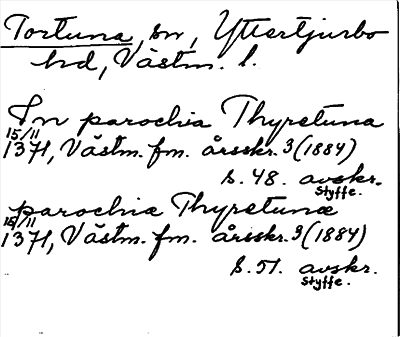 Tortuna, sn, Yttertjurbo
hd, Västm. l.
In parochia Thyretuna
15/11
1371, Västm. fm. årsskr. 3 (1884)
s. 48. avskr.
Styffe.
parochia Thyretuna
15/11
1371, Västm. fm. årsskr. 3 (1884)
s. 51. avskr.
Styffe.